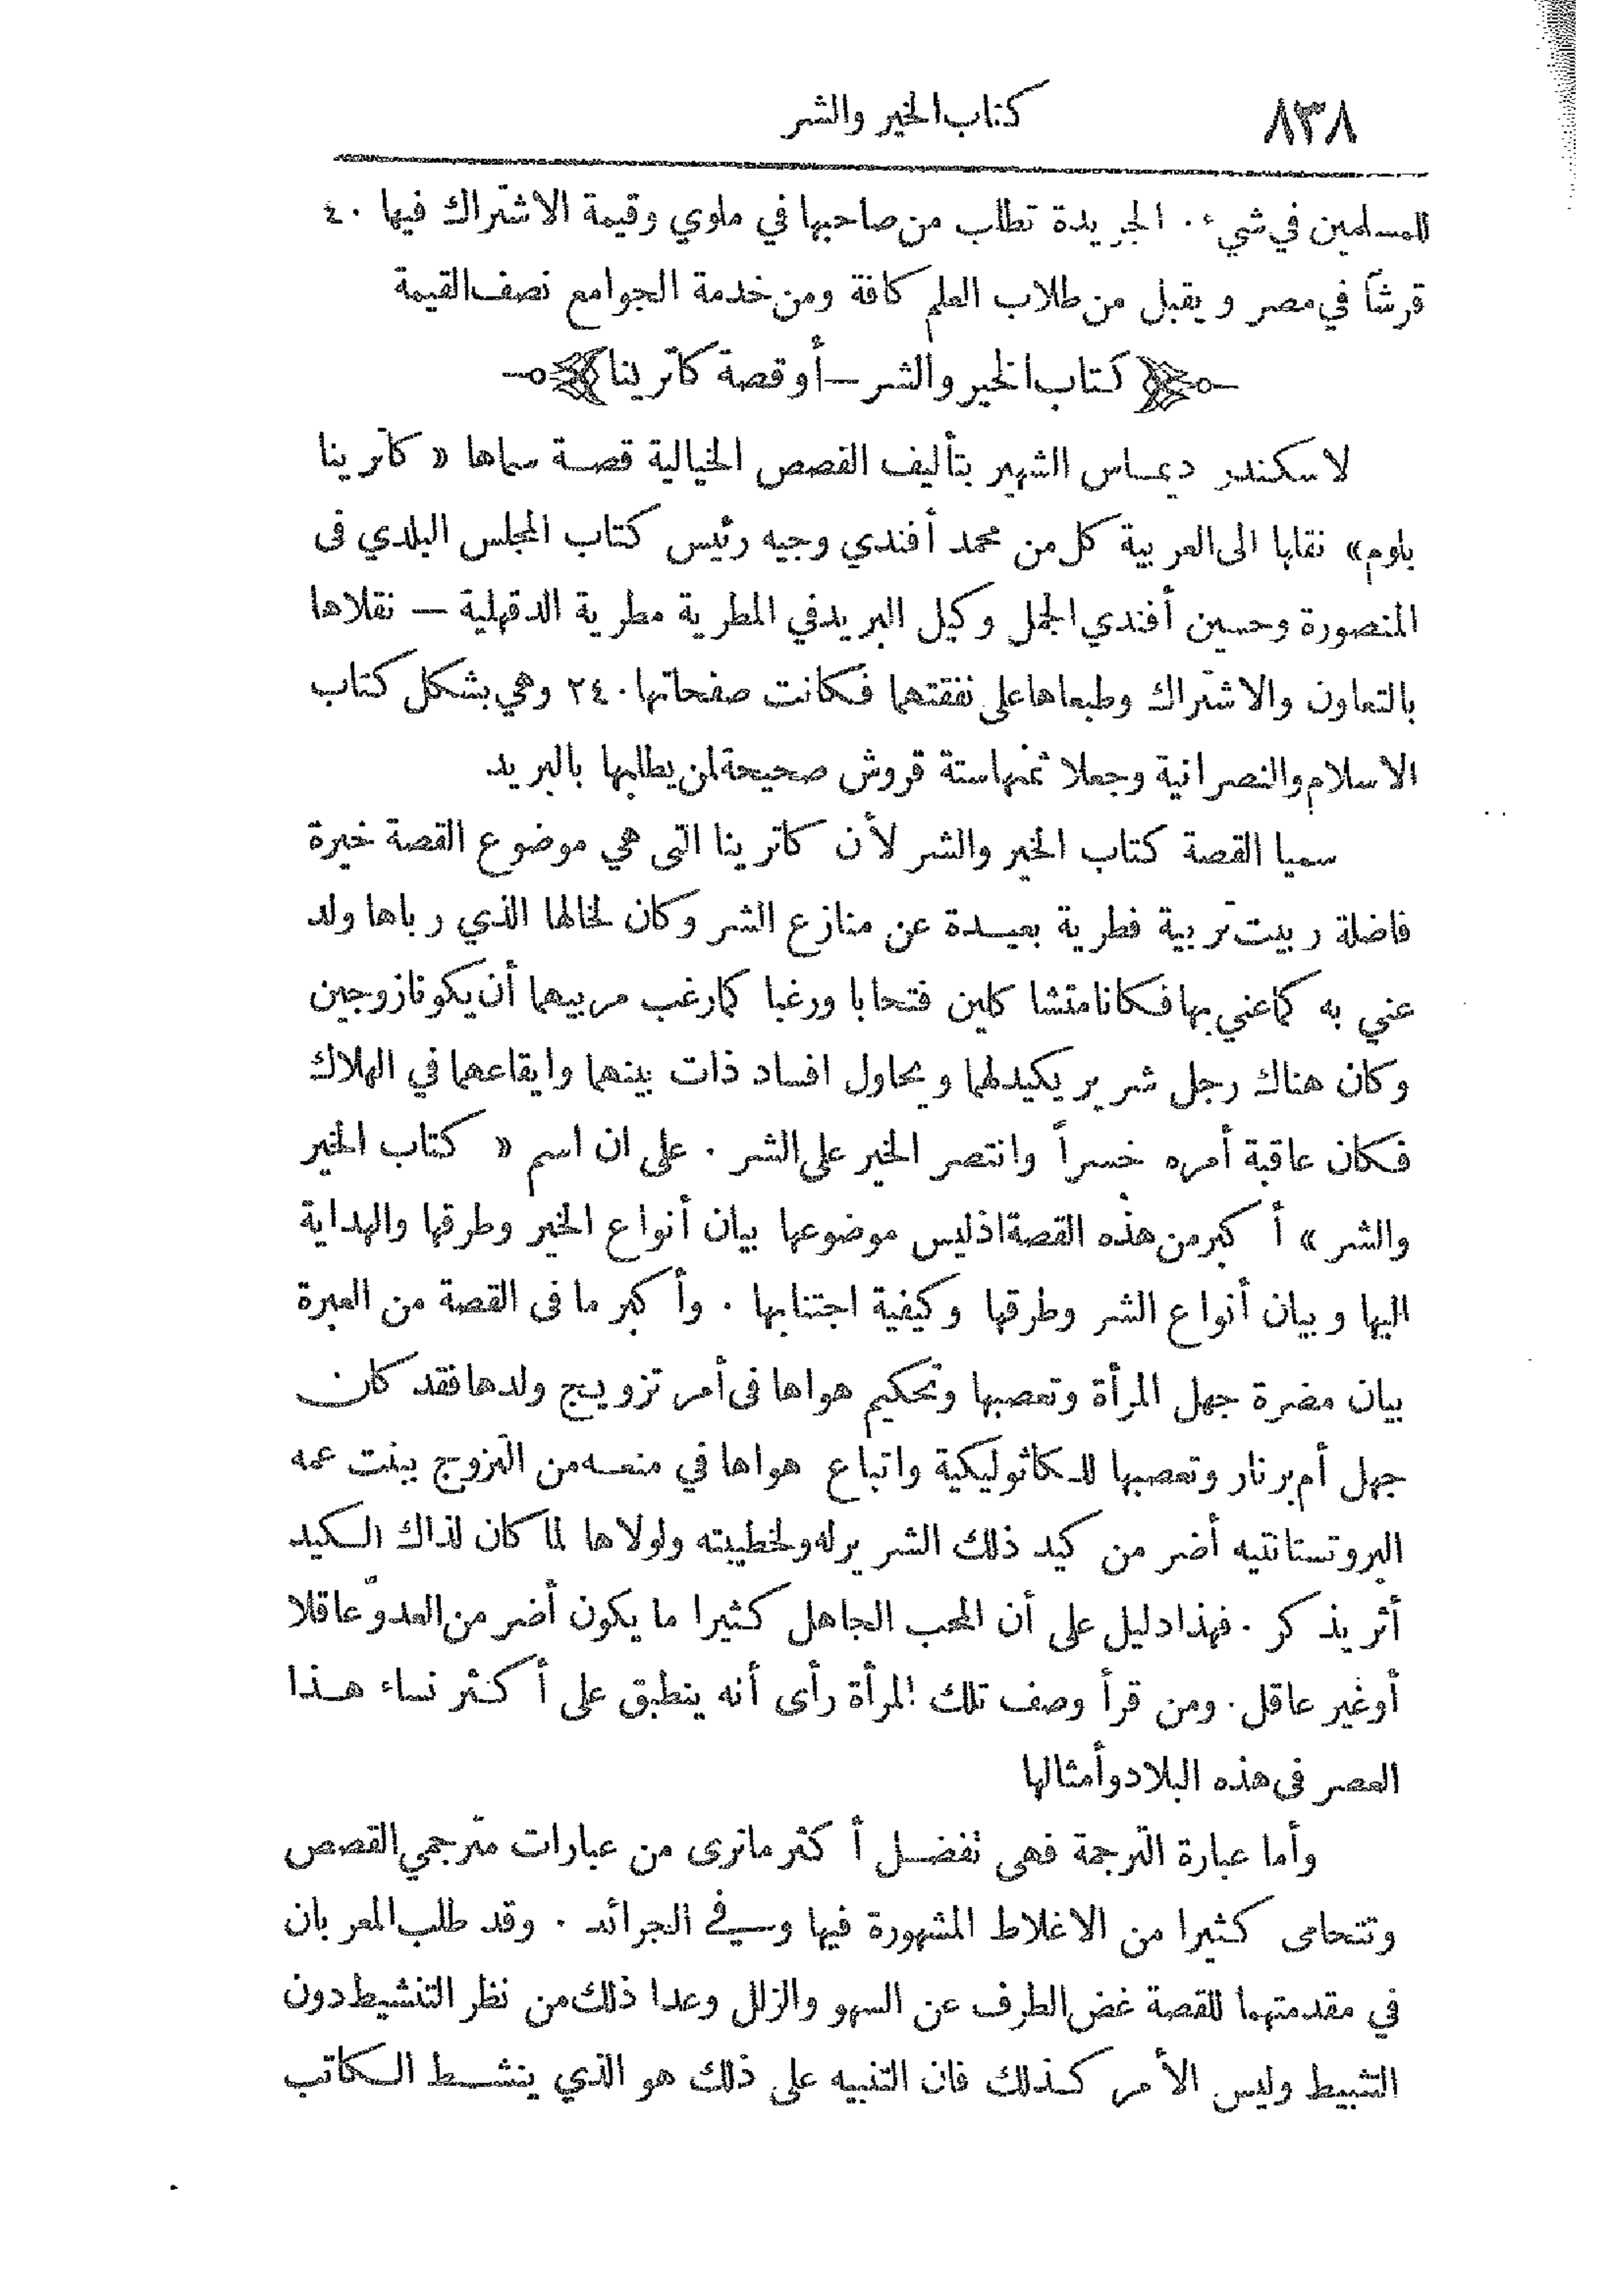 ٨٣٨
كتاب الخير والشر
للمسلمين في شيء . الجريدة تطلب من صاحبها في ملوي وقيمة الاشتراك فيها ٤٠
قرشاً في مصر ويقبل من طلاب العلم كافة ومن خدمة الجوامع نصف القيمة
كتاب الخير والشر — أو قصة كاترينا
لاسكندر ديماس الشهير بتأليف القصص الخيالية قصة سماها « كاترينا
بلوم » نقلها الى العربية كل من محمد أفندي وجيه رئيس كتاب المجلس البلدي فى
المنصورة وحسين أفندي الجمل وكيل البريد في المطرية مطرية الدقهلية — نقلاها
بالتعاون والاشتراك وطبعاها على نفقتهما فكانت صفحاتها ٢٤٠ وهي بشكل كتاب
الاسلام والنصرانية وجعلا ثمنها ستة قروش صحيحة لمن يطلبها بالبريد
سميا القصة كتاب الخير والشر لأن كاترينا التى هي موضوع القصة خيرة
فاضلة ربيت تربية فطرية بعيدة عن منازع الشر وكان لخالها الذي رباها ولد
عني به كما عني بها فكانا متشاكلين فتحابا ورغبا كما رغب مربيهما أن يكونا زوجين
وكان هناك رجل شرير يكيد لهما ويحاول افساد ذات بينهما وايقاعهما في الهلاك
فكان عاقبة أمره خسراً وانتصر الخير على الشر . على ان اسم « كتاب الخير
والشر » أكبر من هذه القصة اذ ليس موضوعها بيان أنواع الخير وطرقها والهداية
اليها وبيان أنواع الشر وطرقها وكيفية اجتنابها . وأكبر ما فى القصة من العبرة
بيان مضرة جهل المرأة وتعصبها وتحكيم هواها فى أمر تزويج ولدها فقد كان
جهل أم برنار وتعصبها للكاثوليكية واتباع هواها في منعه من التزوج ببنت عمه
البروتستانتيه أضر من كيد ذلك الشرير له ولخطيبته ولولاها لما كان لذاك الكيد
أثر يذكر . فهذا دليل على أن المحب الجاهل كثيرا ما يكون أضر من العدوّ عاقلا
أو غير عاقل . ومن قرأ وصف تلك المرأة رأى أنه ينطبق على أكثر نساء هذا
العصر فى هذه البلاد وأمثالها
وأما عبارة الترجمة فهى تفضل أكثر ما ترى من عبارات مترجمي القصص
وتتحامى كثيرا من الاغلاط المشهورة فيها وفي الجرائد . وقد طلب المعربان
في مقدمتهما للقصة غض الطرف عن السهو والزلل وعدا ذلك من نظر التنشيط دون
التثبيط وليس الأمر كذلك فان التنبيه على ذلك هو الذي ينشط الكاتب